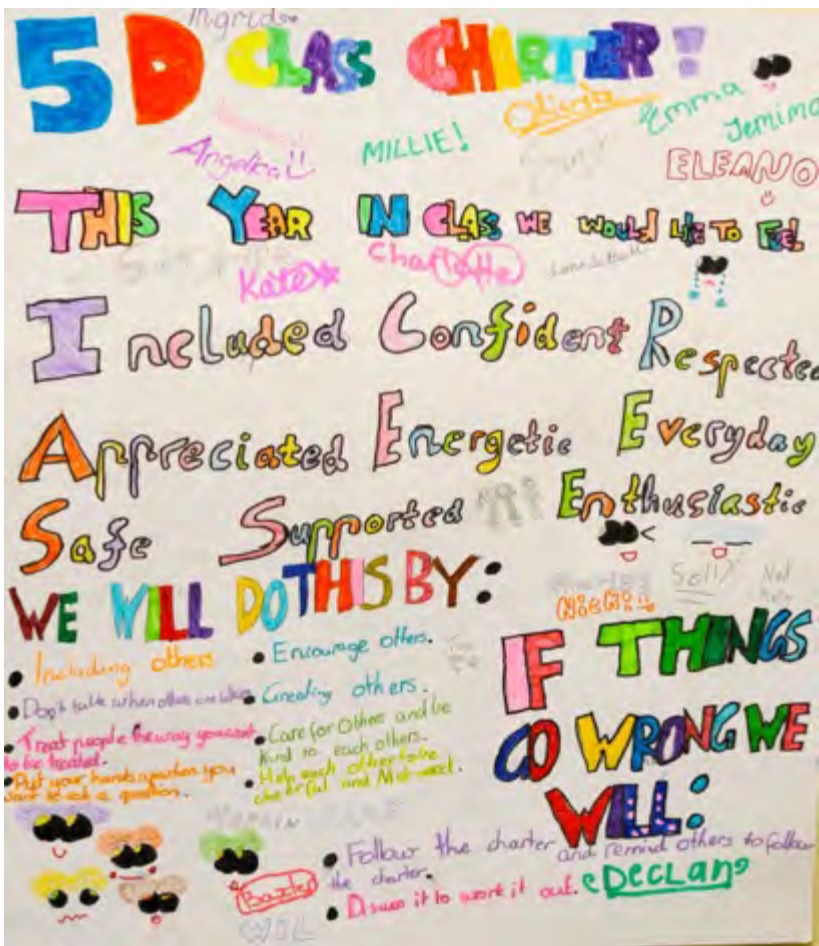 Ingrid
5D CLASS CHARTER!
Olivia
Emma
Jemima
Angelica!!
MILLIE!
ELEANO
THIS YEAR IN CLASS WE WOULD LIKE TO FEEL
Kate
Charlotte
Included Confident Respected
Appreciated Energetic Everyday
Safe Supported Enthusiastic
Sally
WE WILL DO THIS BY:
Including others
Don't talk when others are
Treat people the way you want
to be treated.
Put your hands up when you
want to ask a question.
Encourage others.
others.
Care for Others and be
kind to each others.
Help each other to be
cheerful and
IF THINGS
GO WRONG WE
WILL:
Follow the charter and remind others to follow
the charter.
Discuss it to work it out.
DECLAN
Baxter